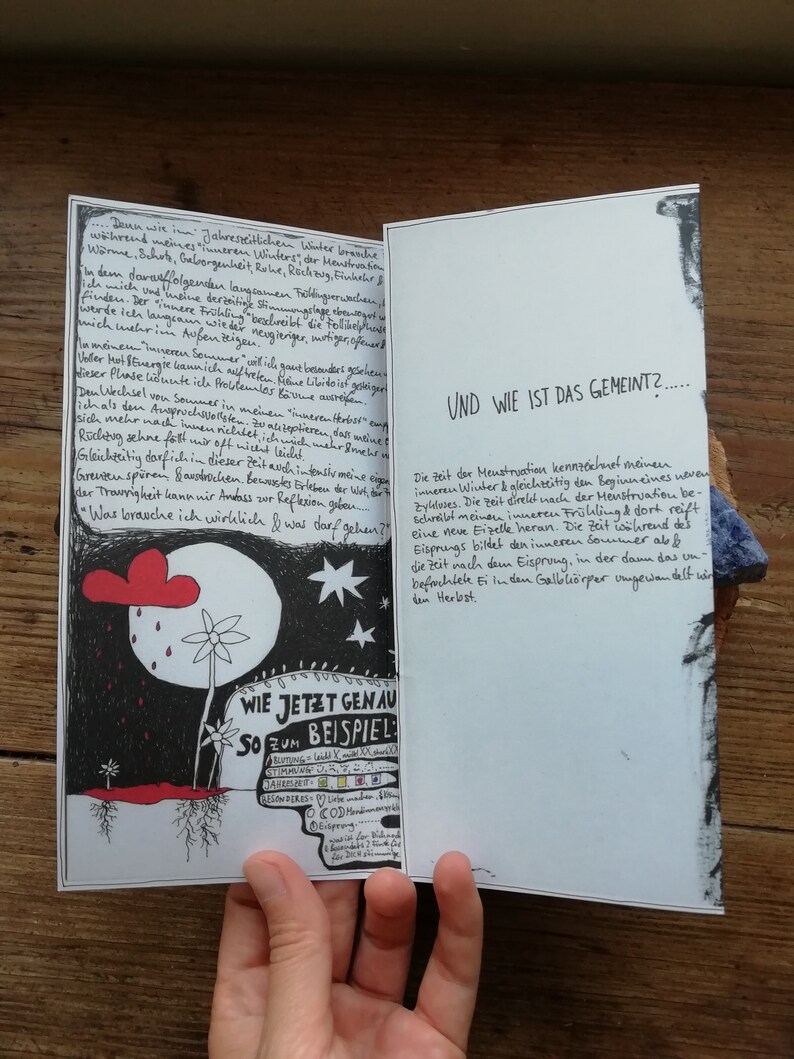 .... Denn wie im Jahreszeitlichen Winter brauche
während meines "inneren Winters", der Menstruation
Wärme, Schutz, Geborgenheit, Ruhe, Rückzug, Einkehr &
In dem darauffolgenden langsamen Frühlingserwachen,
ich mich und meine derzeitige Stimmungslage ebensogut
finden. Der "innere Frühling" beschreibt die Follikelphase
werde ich langsam wieder neugieriger, mutiger, offener &
mich mehr im Außen zeigen.
In meinem "inneren Sommer" will ich ganz besonders gesehen
Voller Mut & Energie kann ich auftreten. Meine Libido ist gesteigert
dieser Phase könnte ich Problemlos Bäume ausreißen.
Den Wechsel von Sommer in meinen "inneren Herbst"
ich als den Anspruchvollsten. Zu akzeptieren, dass meine
sich mehr nach innen richtet, ich mich mehr & mehr
Rückzug sehne fällt mir oft nicht leicht.
Gleichzeitig darf ich in dieser Zeit auch intensiv meine
Grenzen spüren & ausdrücken. Bewusstes Erleben der Wut, der
der Traurigkeit kann mir Anlass zur Reflexion geben....
"Was brauche ich wirklich & was darf gehen?"
WIE JETZT GENAU
SO ZUM BEISPIEL:
BLUTUNG = leicht X, mittel XX, stark XX
STIMMUNG =
JAHRESZEIT =
BESONDERES = ♡ Liebe machen,
Eisprung.
UND WIE IST DAS GEMEINT?.....
Die Zeit der Menstruation kennzeichnet meinen
inneren Winter & gleichzeitig den Beginn eines neuen
Zyklus. Die Zeit direkt nach der Menstruation be-
schreibt meinen inneren Frühling & dort reift
eine neue Eizelle heran. Die Zeit während des
Eisprungs bildet den inneren Sommer ab &
die Zeit nach dem Eisprung, in der dann das un-
befruchtete Ei in den Gelbkörper umgewandelt wir
den Herbst.